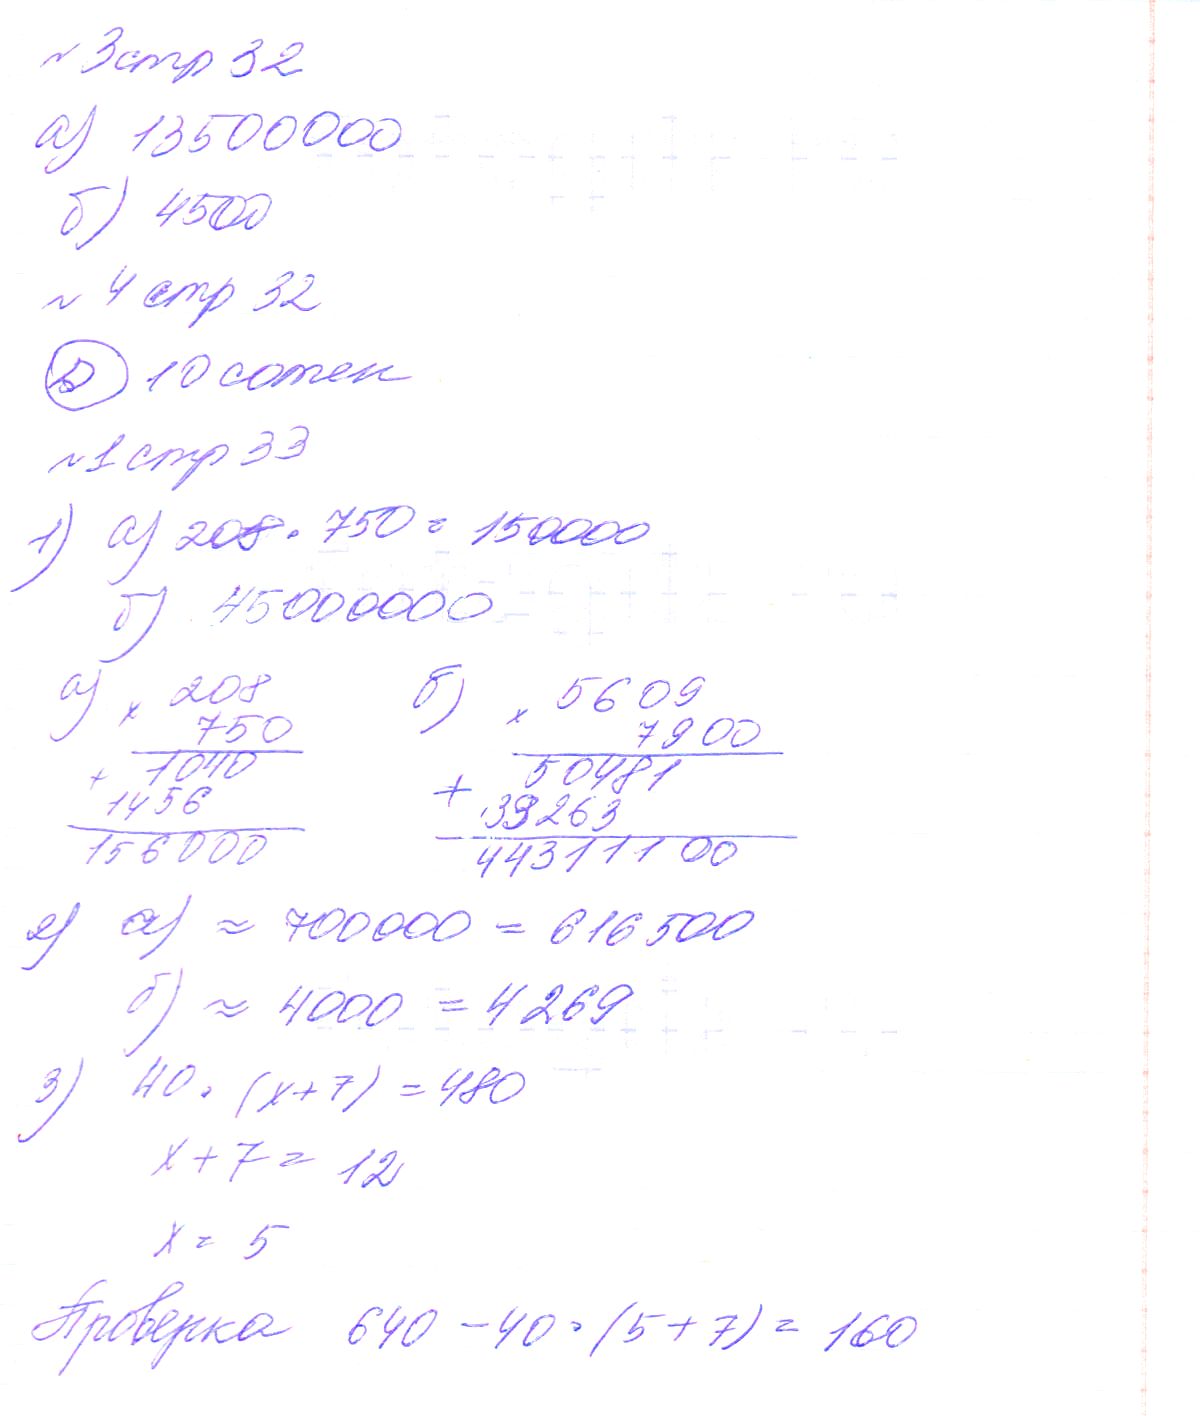 ~ 3 стр 32
а) 13500000
б) 4500
~ 4 стр 32
10 сотен
~ 1 стр 33
1) а) 208 · 750 = 150000
б) 45000000
а) х 208
750
+ 1040
1456
156000
б) х 5609
7900
50481
+ 39263
44311100
2) а) ≈ 700000 = 616500
б) ≈ 4000 = 4269
3) 40 · (х+7) = 480
х + 7 = 12
х = 5
Проверка 640 - 40 · (5+7) = 160